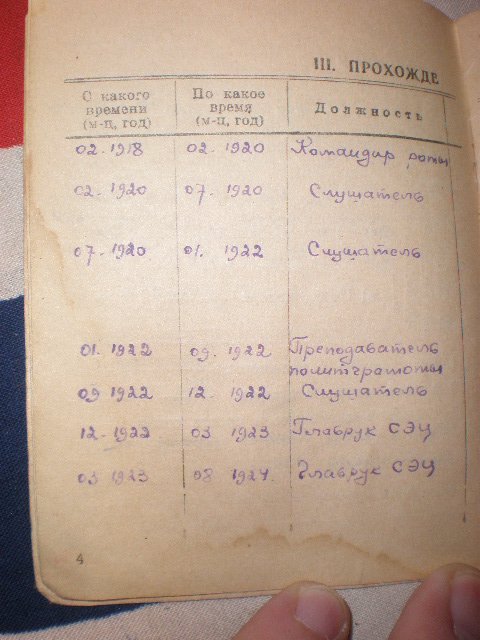 III. ПРОХОЖДЕ
С какого времени (м-ц, год) По какое время (м-ц, год) Должность
02.1918 02.1920 Командир роты
02.1920 07.1920 Слушатель
07.1920 01.1922 Слушатель
01.1922 09.1922 Преподаватель
политграмоты
09 1922 12.1922 Слушатель
12.1922 03 1923 Главрук СЭЦ
03 1923 08 1924. Главрук СЭЦ
4